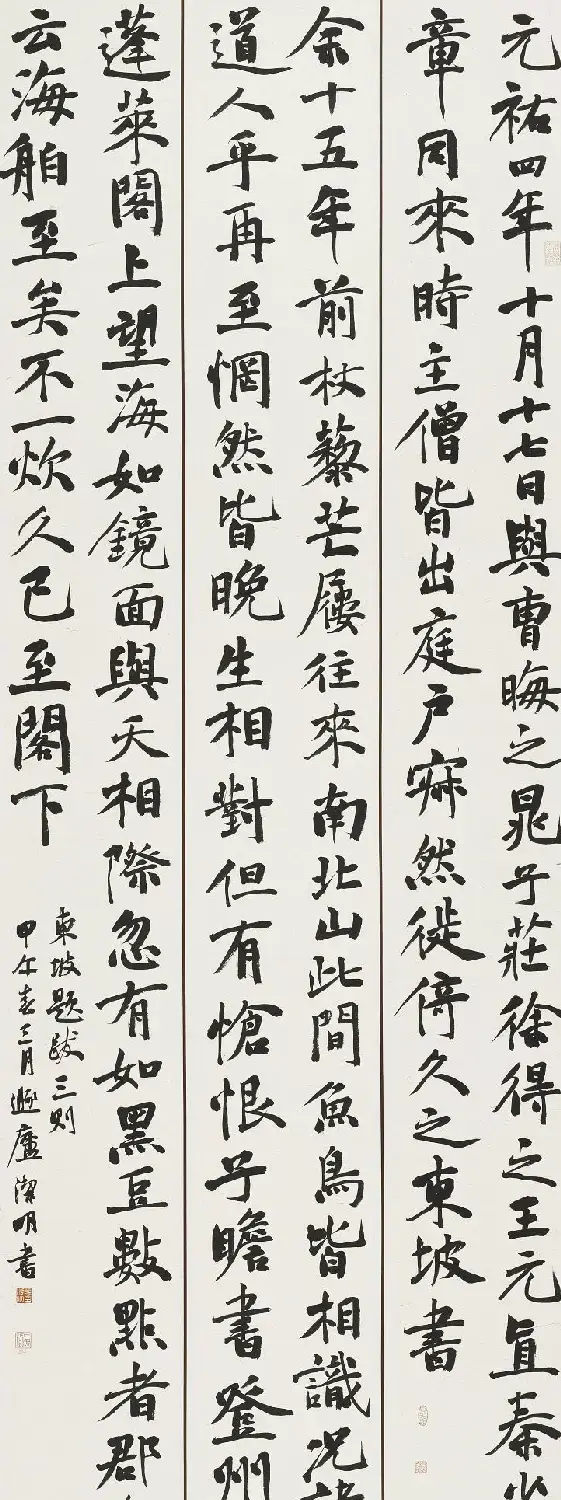 元祐四年十月十七日與曹晦之晁子莊徐得之王元直秦少
章同來時主僧皆出庭戶寂然徙倚久之東坡書
余十五年前杖藜芒屨往來南北山此間魚鳥皆相識況諸
道人乎再至惘然皆晚生相對但有愴恨子瞻書登州
蓬萊閣上望海如鏡面與天相際忽有如黑豆數點者郡
云海舶至矣不一炊久已至閣下
東坡題跋三則
甲午春三月廬潔明書